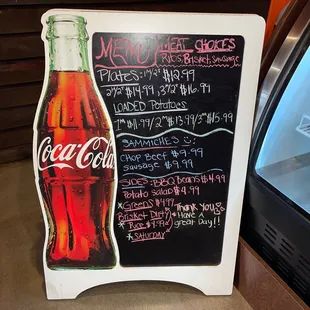 MENU
MEAT CHOICES
RIBS, BRISKET, SAUSAGE
PLATES: 1 1/2" $12.99
2 1/2" $14.99, 3 1/2" $16.99
LOADED POTATOES
1 m $11.99/2 m $13.99/3 m $15.99
SAMMICHES :)
CHOP BEEF $9.99
SAUSAGE $9.99
SIDES: BBQ BEANS $4.99
POTATO SALAD $4.99
*GREENS $4.99
BRISKET DIRTY
*RICE $4.99
*SATURDAY
THANK YOU
*HAVE A
great Day!!
Coca-Cola